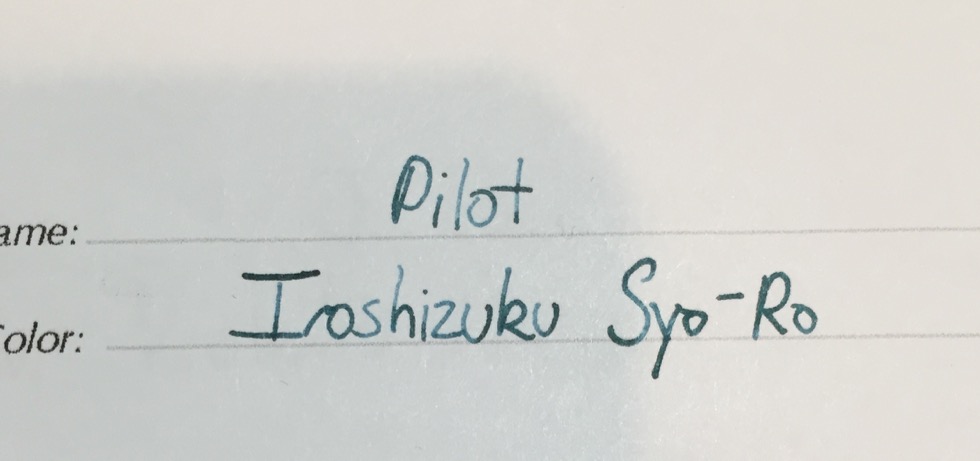 ame: Pilot
Color: Iroshizuku Syo-Ro